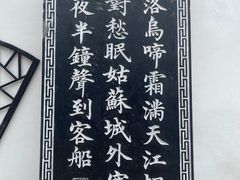 落烏啼霜滿天江
對愁眠姑蘇城外寒
夜半鐘聲到客船